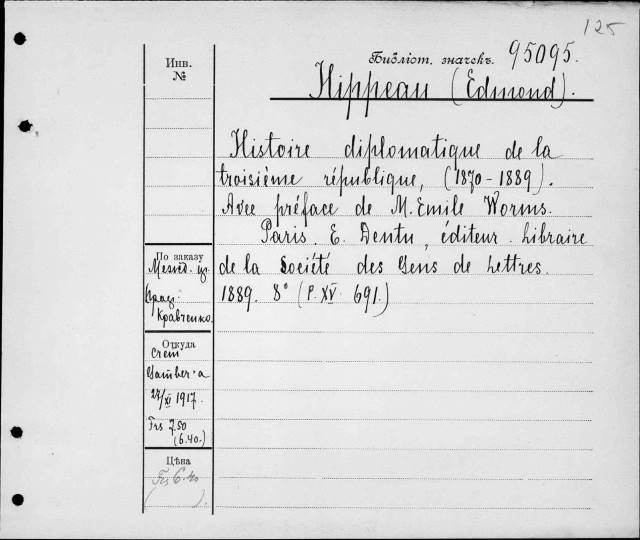 125
Библіот. значекъ. 95095.
Hippeau (Edmond).
Histoire diplomatique de la
troisième république, (1870-1889).
Avec préface de M. Emile Worms.
Paris. E. Dentu, éditeur. Libraire
de la Société des Gens de Lettres.
1889. 8° (P. XV. 691.)
Инв.
№
По заказу
Кравченко.
Откуда
27/XI 1917.
Frs 7.50
(6.40.)
Цѣна
Frs 6.40
( ).